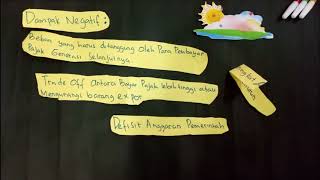 Dampak Negatif :
Beban yang harus ditanggung oleh Para Pembayar
Pajak Generasi Selanjutnya.
Trade Off Antara Bayar Pajak lebih tinggi atau
Mengurangi barang expor
Defisit Anggaran Pemerintah